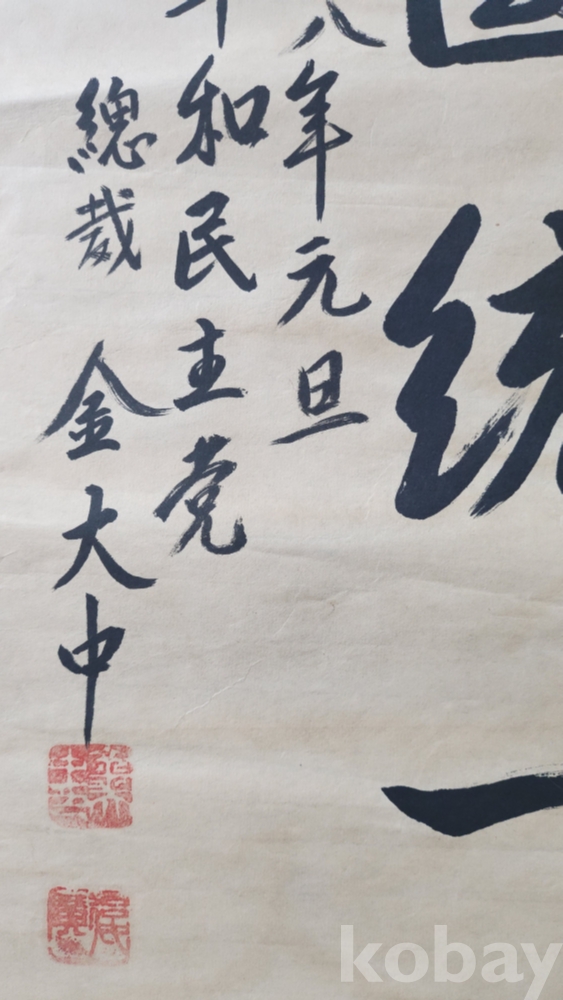 統一
八年元旦
和民主党
總裁 金大中
kobay